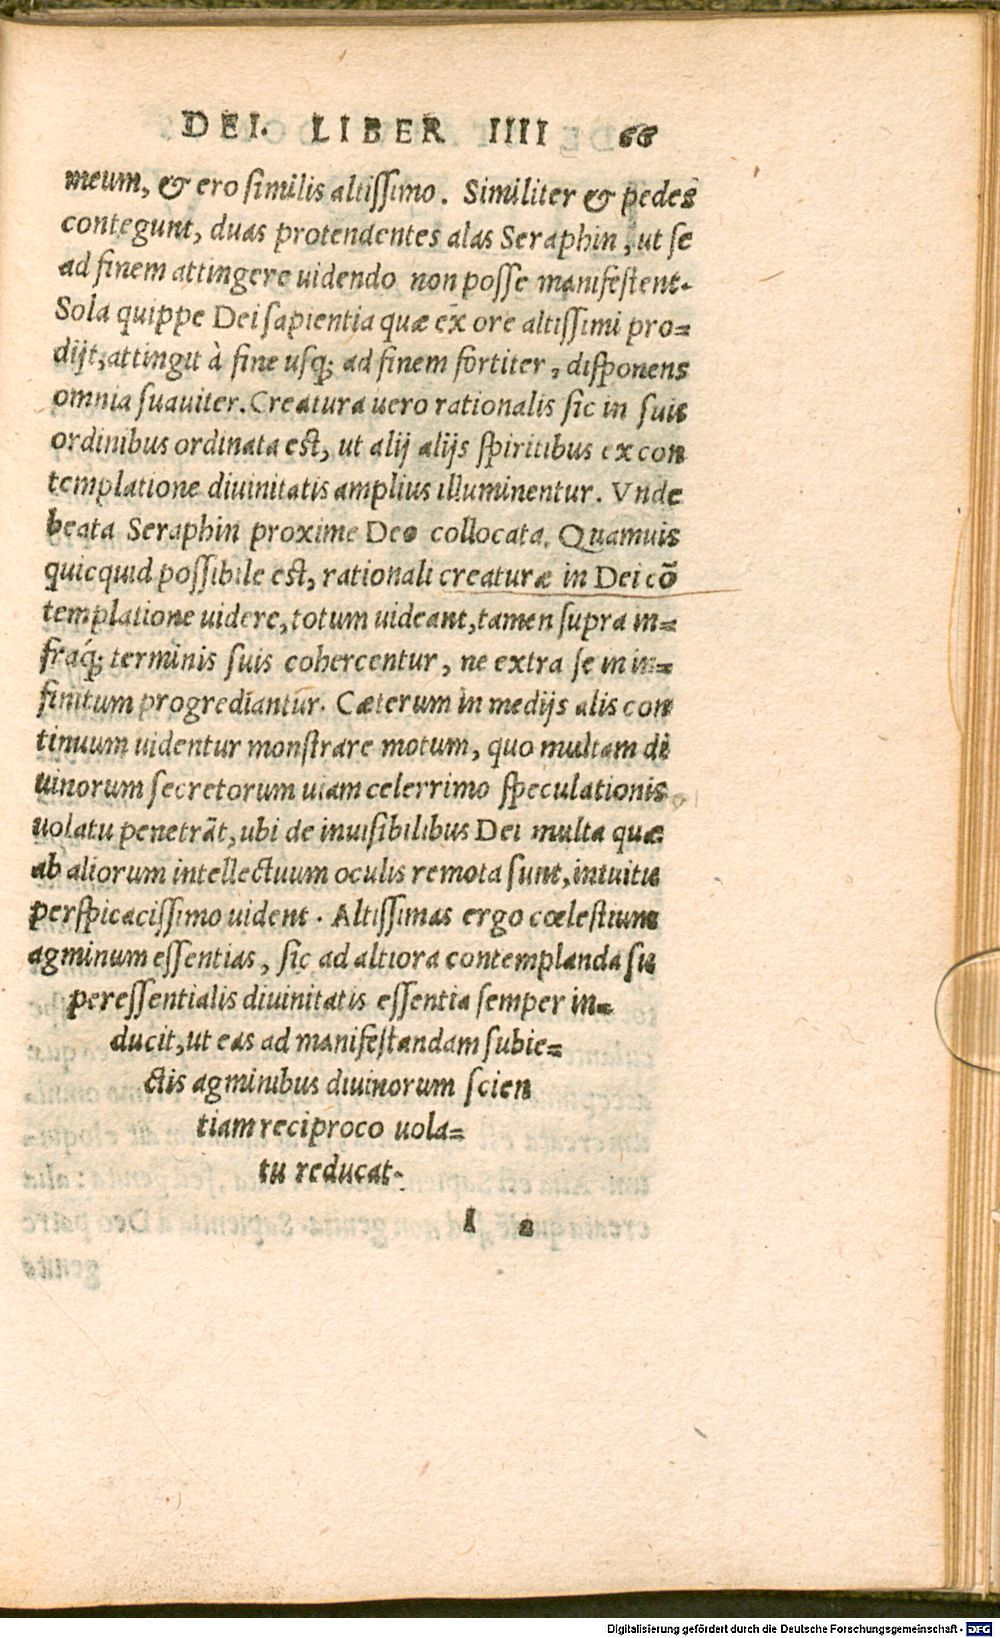 DEI. LIBER IIII 66
meum, & ero similis altissimo. Similiter & pedes
contegunt, duas protendentes alas Seraphin, ut se
ad finem attingere uidendo non posse manifestent.
Sola quippe Dei sapientia quæ ex ore altissimi pro=
dijt, attingit à fine usq; ad finem fortiter, disponens
omnia suauiter. Creatura uero rationalis sic in suis
ordinibus ordinata est, ut alij alijs spiritibus ex con
templatione diuinitatis amplius illuminentur. Vnde
beata Seraphin proxime Deo collocata. Quamuis
quicquid possibile est, rationali creaturæ in Dei cõ
templatione uidere, totum uideant, tamen supra in=
fraq́; terminis suis cohercentur, ne extra se in in=
finitum progrediantur. Cæterum in medijs alis con
tinuum uidentur monstrare motum, quo multam di
uinorum secretorum uiam celerrimo speculationis
uolatu penetrãt, ubi de inuisibilibus Dei multa quæ
ab aliorum intellectuum oculis remota sunt, intuitu
perspicacissimo uident. Altissimas ergo cœlestium
agminum essentias, sic ad altiora contemplanda su
peressentialis diuinitatis essentia semper in=
ducit, ut eas ad manifestandam subie=
ctis agminibus diuinorum scien
tiam reciproco uola=
tu reducat.
I 2
Digitalisierung gefördert durch die Deutsche Forschungsgemeinschaft - DFG